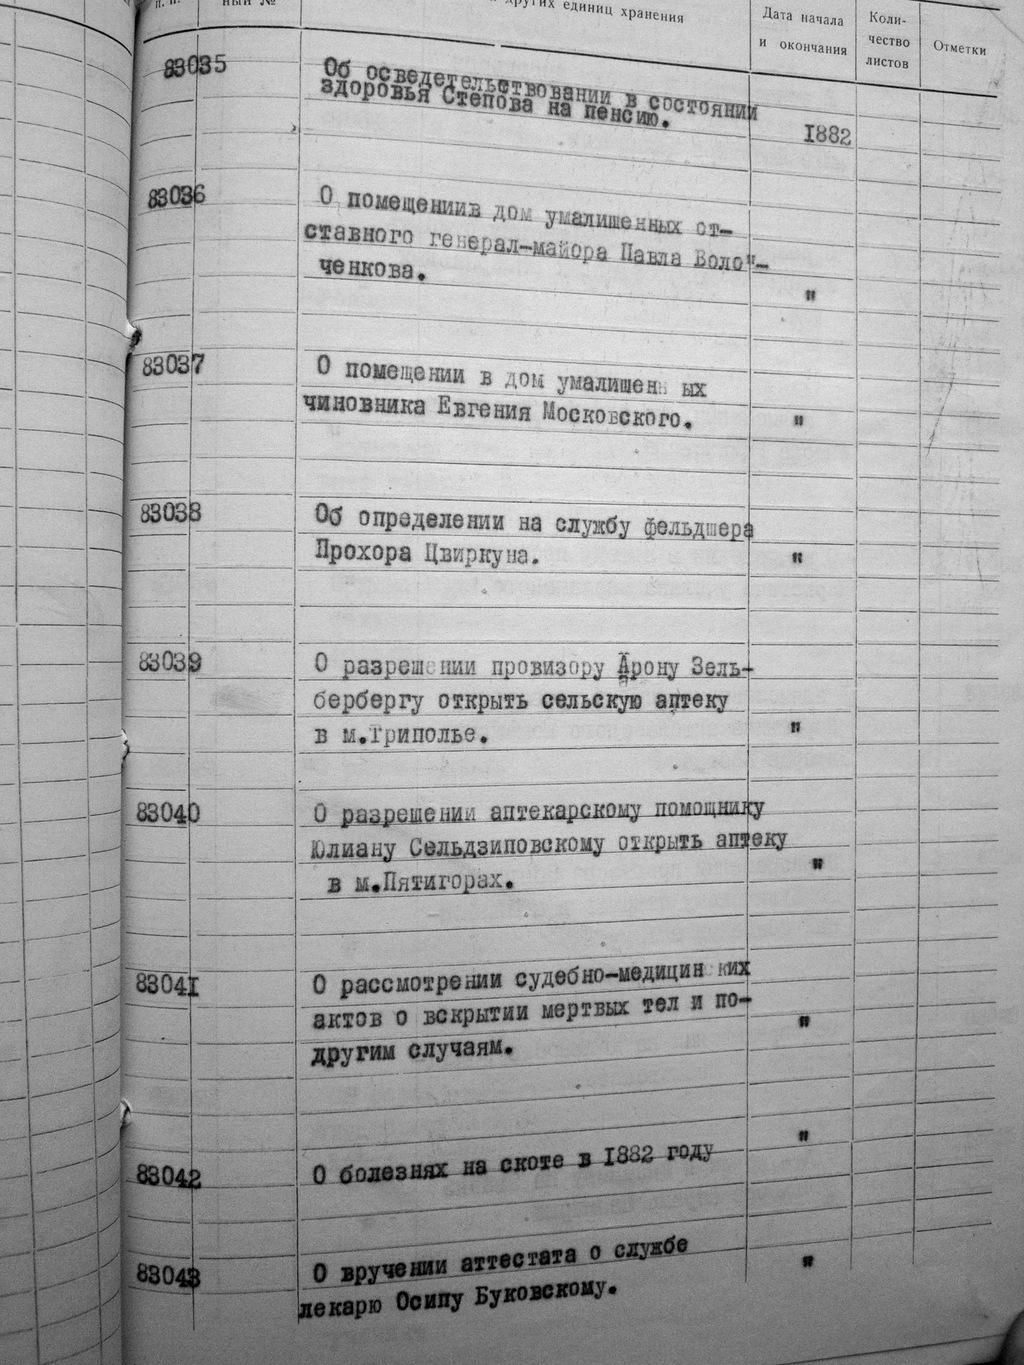 других единиц хранения
Дата начала
и окончания
Коли-
чество
листов
Отметки
83035
Об осведетельствовании в состоянии
здоровья Степова на пенсию.
1882
83036
О помещениив дом умалишенных от-
ставного генерал-майора Павла
ченкова.
"
83037
О помещении в дом умалишенн ых
чиновника Евгения Московского.
"
83038
Об определении на службу фельдшера
Прохора Цвиркуна.
"
83039
О разрешении провизору Арону Зель-
бербергу открыть сельскую аптеку
в м.Триполье.
"
83040
О разрешении аптекарскому помощнику
Юлиану Сельдзиповскому открыть аптеку
в м.Пятигорах.
"
83041
О рассмотрении судебно-медицинских
актов о вскрытии мертвых тел и по-
другим случаям.
"
83042
О болезнях на скоте в 1882 году
"
83043
О вручении аттестата о службе
лекарю Осипу Буковскому.
"